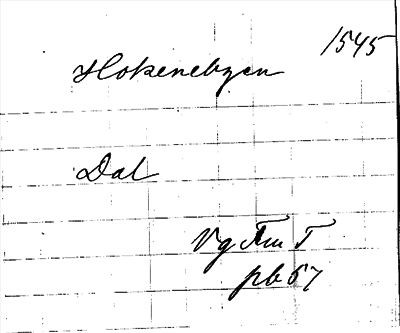 1545
Hokenebyen
Dal
Vg Fm T
pb 57